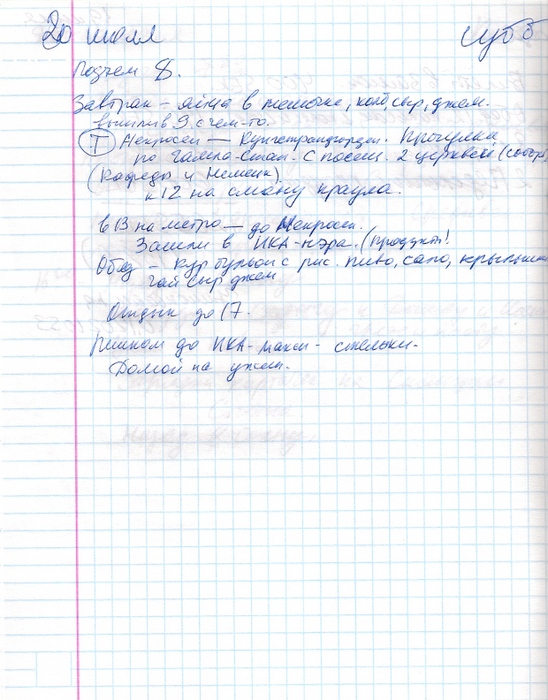 20 июля субб
Подъем 8.
Завтрак – яйца в мешочке, колб, сыр, джем.
вышли в 9 с чем-то.
Т Мекросен — Кунгстрандгорден. Прогулка
по Гамла-Стан. С посещ. 2 церквей (собор
(Кафедр и Немецк).
к 12 на смену караула.
в 13 на метро — до Мекросен.
Зашли в ИКА-нэра. (продукты!
Обед – кур бульон с рис. пиво, сало, крылышки
чай сыр джем
Отдых до 17.
Пешком до ИКА-макси – стельки.
Домой на ужин.